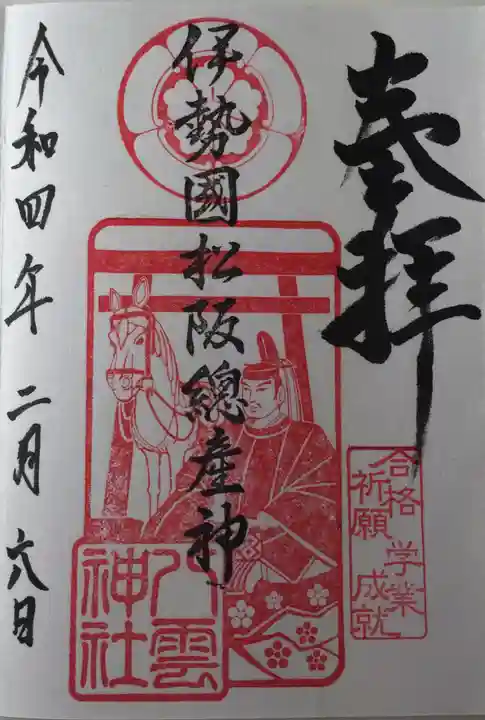 奉拝
合格 学業
祈願 成就
伊勢國松阪總産神
八雲
神社
令和四年 二月 六日